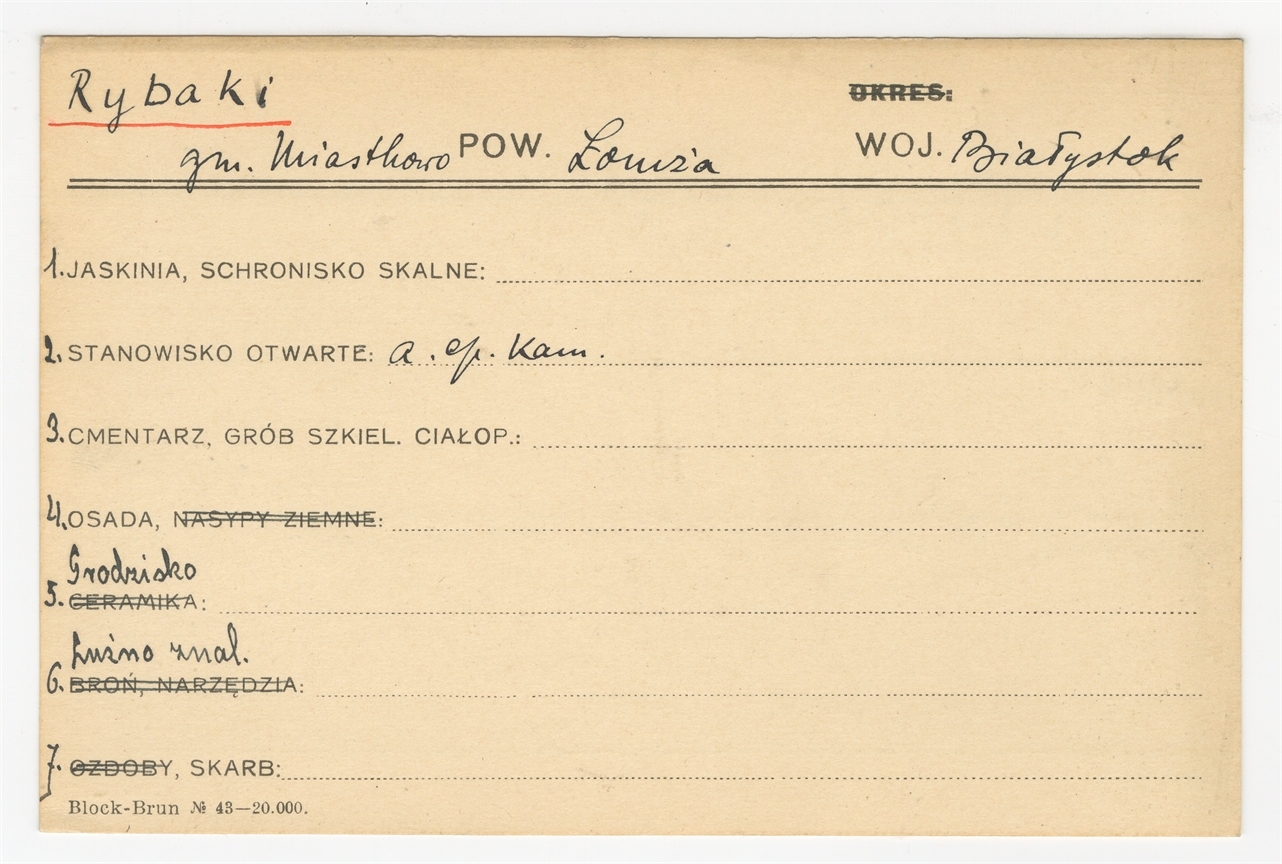 Rybaki
OKRES:
gm. Miastkowo POW. Łomża WOJ. Białystok
1. JASKINIA, SCHRONISKO SKALNE:
2. STANOWISKO OTWARTE: a. ep. Kam.
3. CMENTARZ, GRÓB SZKIEL. CIAŁOP.:
4. OSADA, NASYPY ZIEMNE:
Grodzisko
5. CERAMIKA:
Luźno znal.
6. BROŃ, NARZĘDZIA:
7. OZDOBY, SKARB:
Block-Brun № 43—20.000.